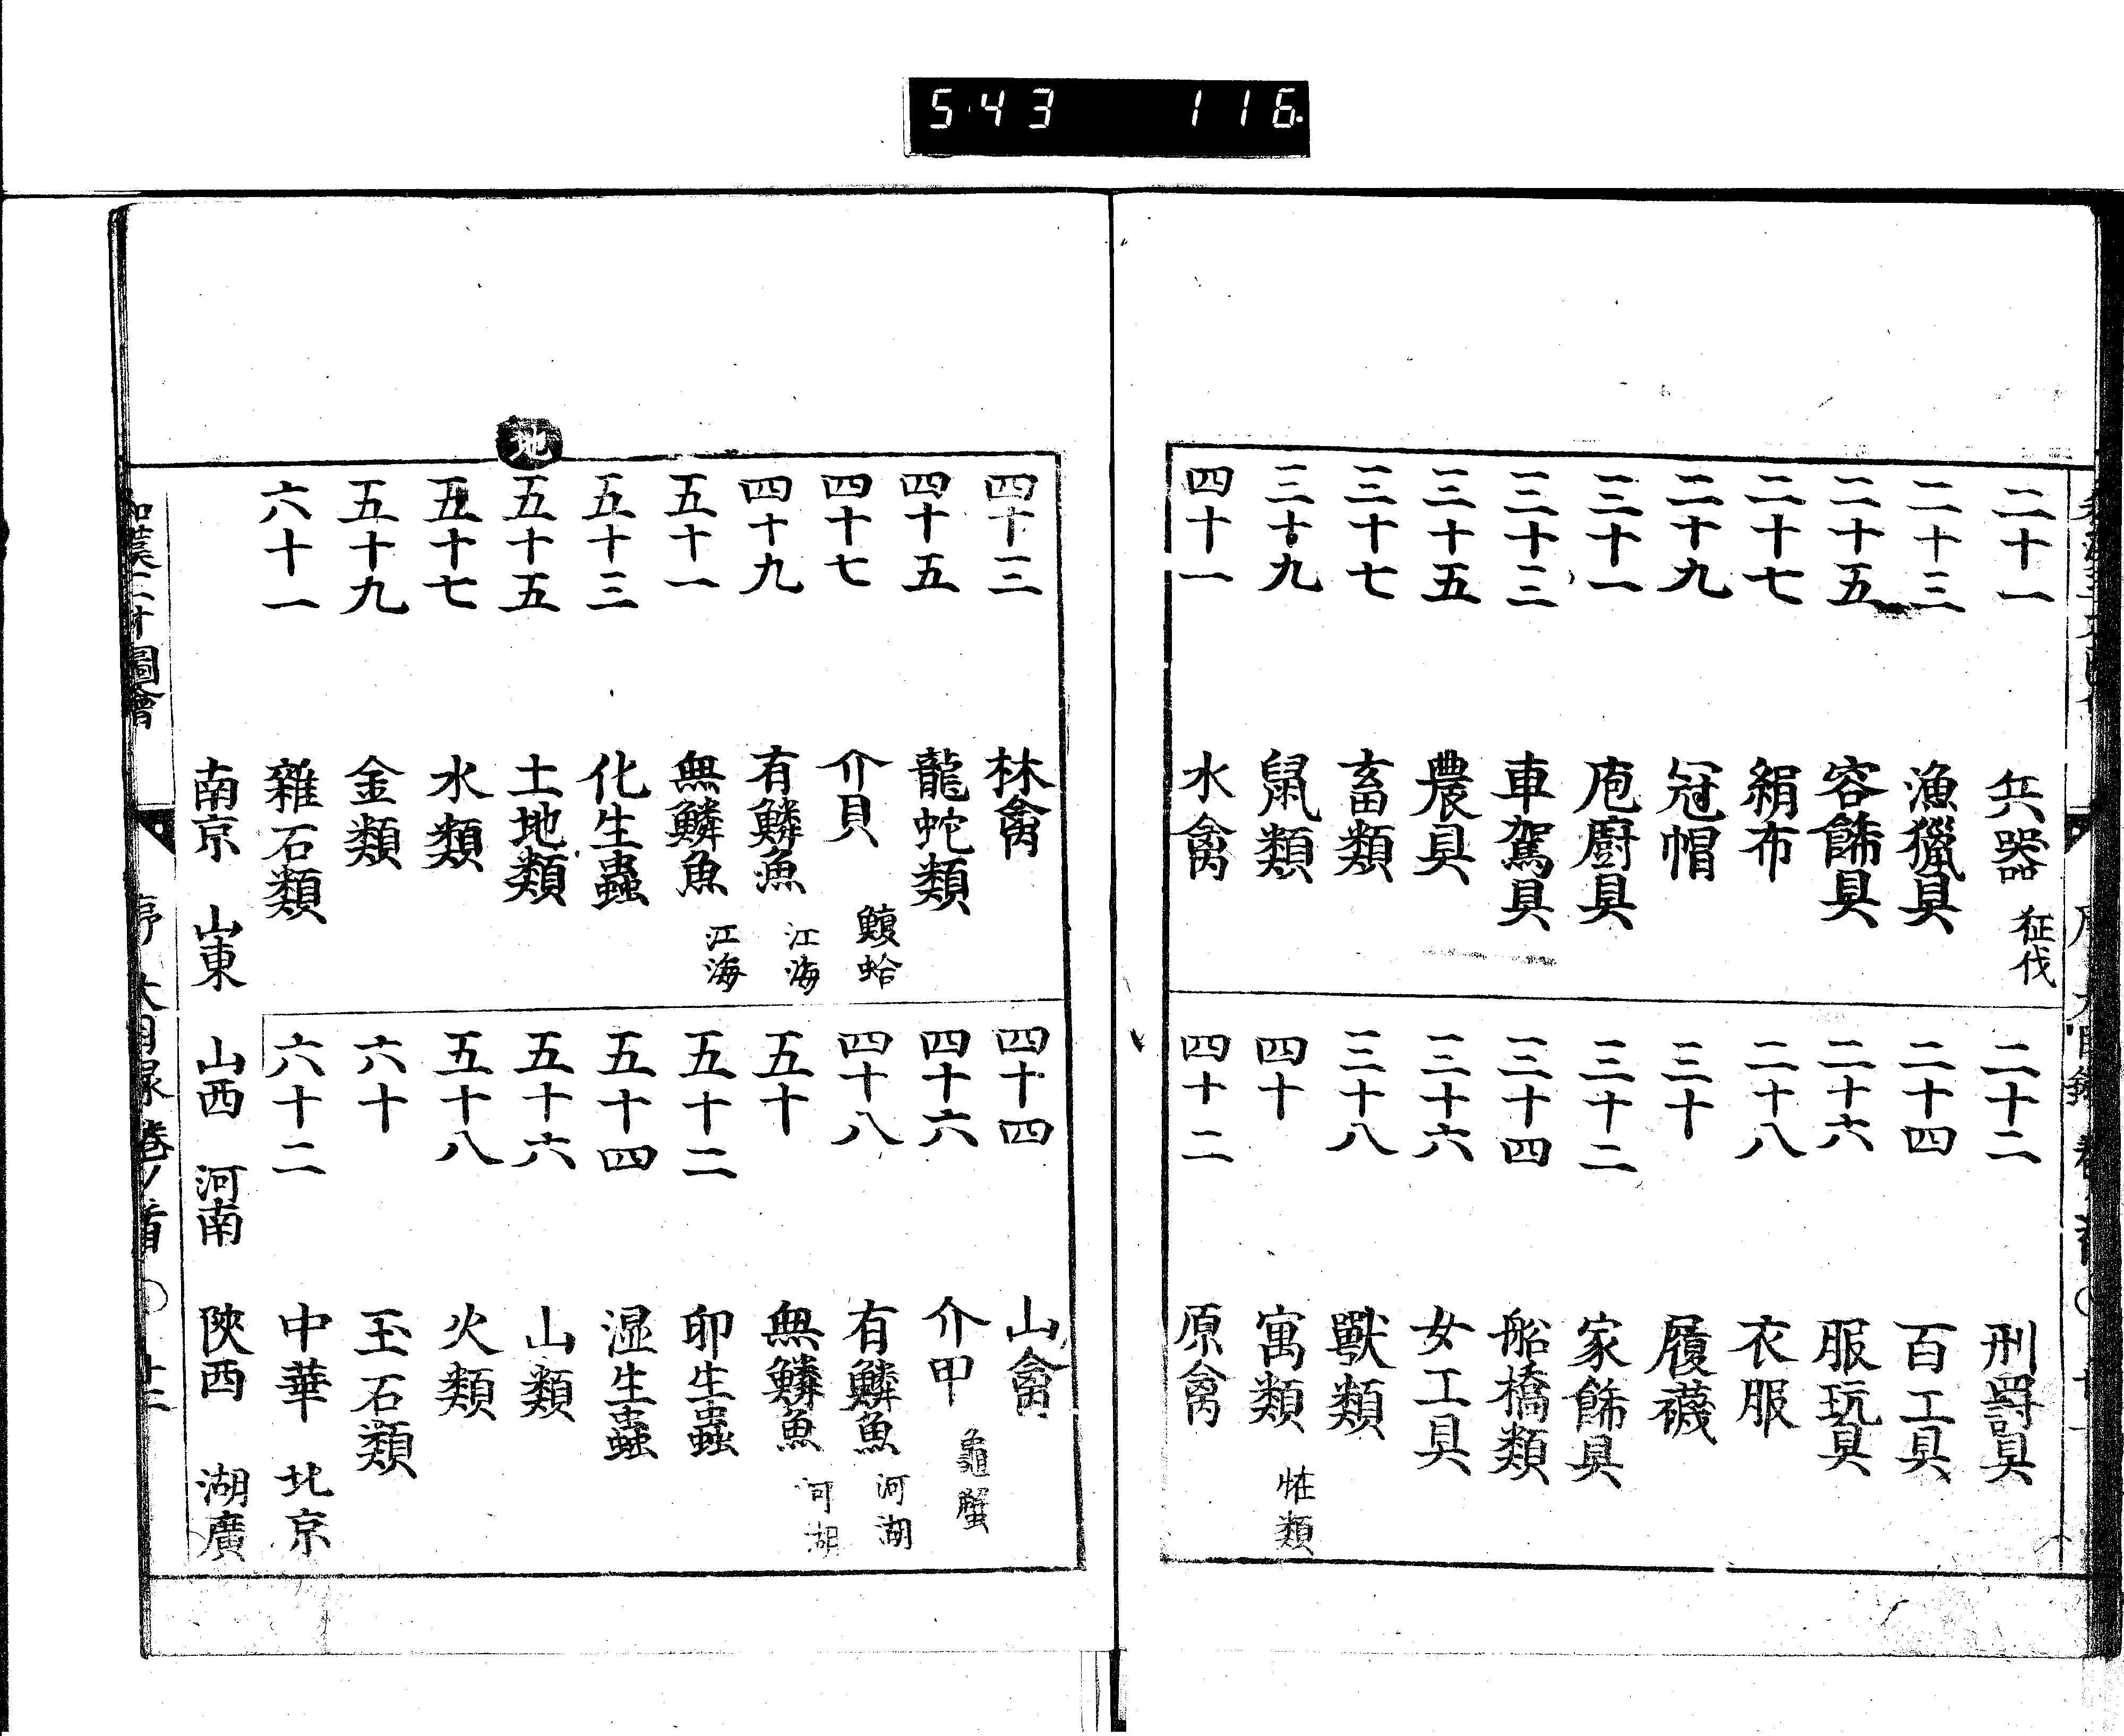 5 43 116
二十一 兵器 征伐
二十二 刑罸具
二十三 漁獵具
二十四 百工具
二十五 容飾具
二十六 服玩具
二十七 絹布
二十八 衣服
二十九 冠帽
三十 履襪
三十一 庖廚具
三十二 家飾具
三十三 車駕具
三十四 船橋類
三十五 農具
三十六 女工具
三十七 畜類
三十八 獸類
三十九 鼠類
四十 寓類 恠類
四十一 水禽
四十二 原禽
四十三 林禽
四十四 山禽
四十五 龍蛇類
四十六 介甲 龜蟹
四十七 介貝 鰒蛤
四十八 有鱗魚 河湖
四十九 有鱗魚 江海
五十 無鱗魚 河湖
五十一 無鱗魚 江海
五十二 卵生蟲
五十三 化生蟲
五十四 湿生蟲
地
五十五 土地類
五十六 山類
五十七 水類
五十八 火類
五十九 金類
六十 玉石類
六十一 雜石類
六十二 中華 北京
南京 山東 山西 河南 陜西 湖廣
圖會 大目录 卷ノ首